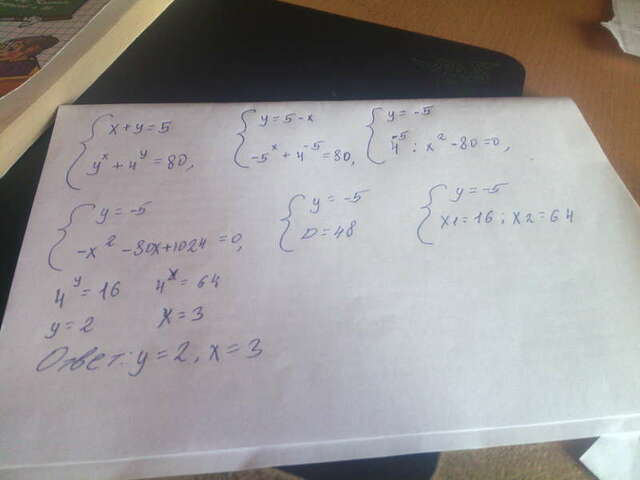 { x+y=5
y^x + 4^y = 80,
{ y=5-x
-5^x + 4^-5 = 80,
{ y=-5
4^-5 : x^2 -80=0,
{ y=-5
-x^2 -80x+1024 =0,
{ y=-5
D=48
{ y=-5
x1=16; x2=64
4^y=16 4^x=64
y=2 x=3
Ответ: y=2, x=3